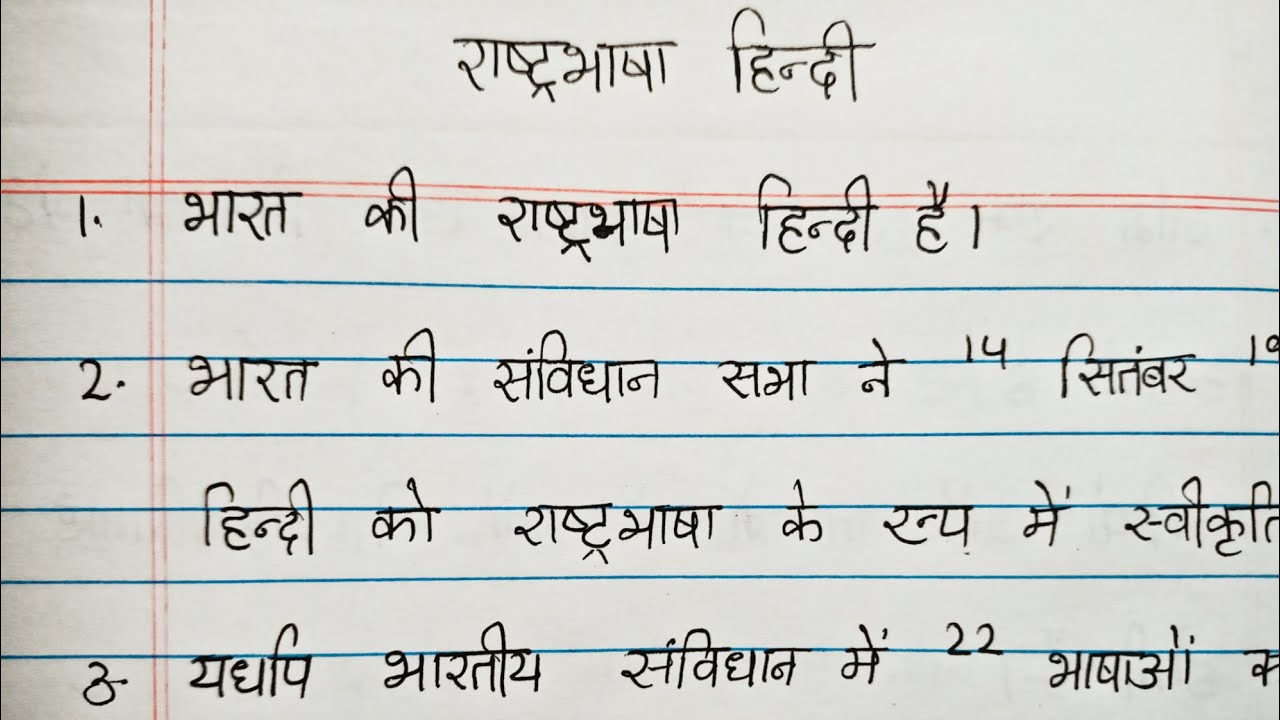 राष्ट्रभाषा हिन्दी
1. भारत की राष्ट्रभाषा हिन्दी है।
2. भारत की संविधान सभा ने 14 सितंबर
हिन्दी को राष्ट्रभाषा के रूप में स्वीकृति
3- यर्धापि भारतीय संविधान में 22 भाषाओं